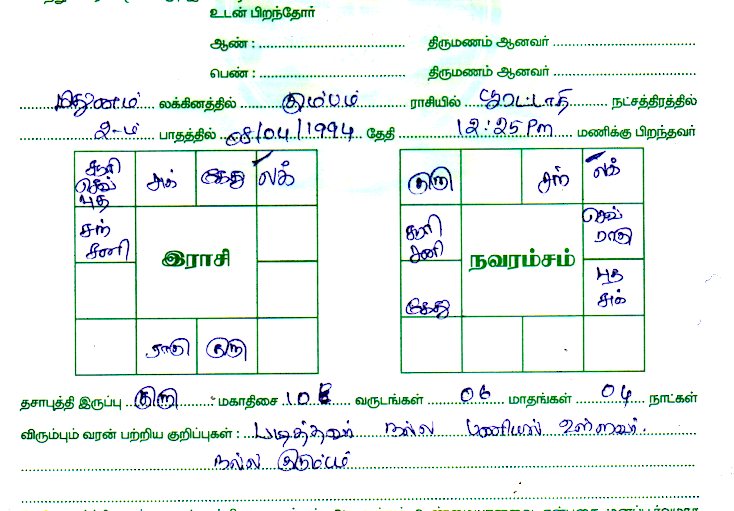 உடன் பிறந்தோர்
ஆண் : திருமணம் ஆனவர்
பெண் : திருமணம் ஆனவர்
மிதுனம் லக்கினத்தில் கும்பம் ராசியில் பூரட்டாதி நட்சத்திரத்தில்
2-ம் பாதத்தில் /04/1994 தேதி 12:25 Pm மணிக்கு பிறந்தவர்
சூரி செவ் புத சுக் கேது லக்
சந் சனி
இராசி
ராகு குரு
குரு சந் லக்
சூரி சனி செவ் ராகு
நவாம்சம்
கேது புத சுக்
தசாபுத்தி இருப்பு குரு மகாதிசை 10 வருடங்கள் 06 மாதங்கள் 04 நாட்கள்
விரும்பும் வரன் பற்றிய குறிப்புகள் : படித்தவர் நல்ல பணியில் உள்ளவர்.
நல்ல குடும்பம்